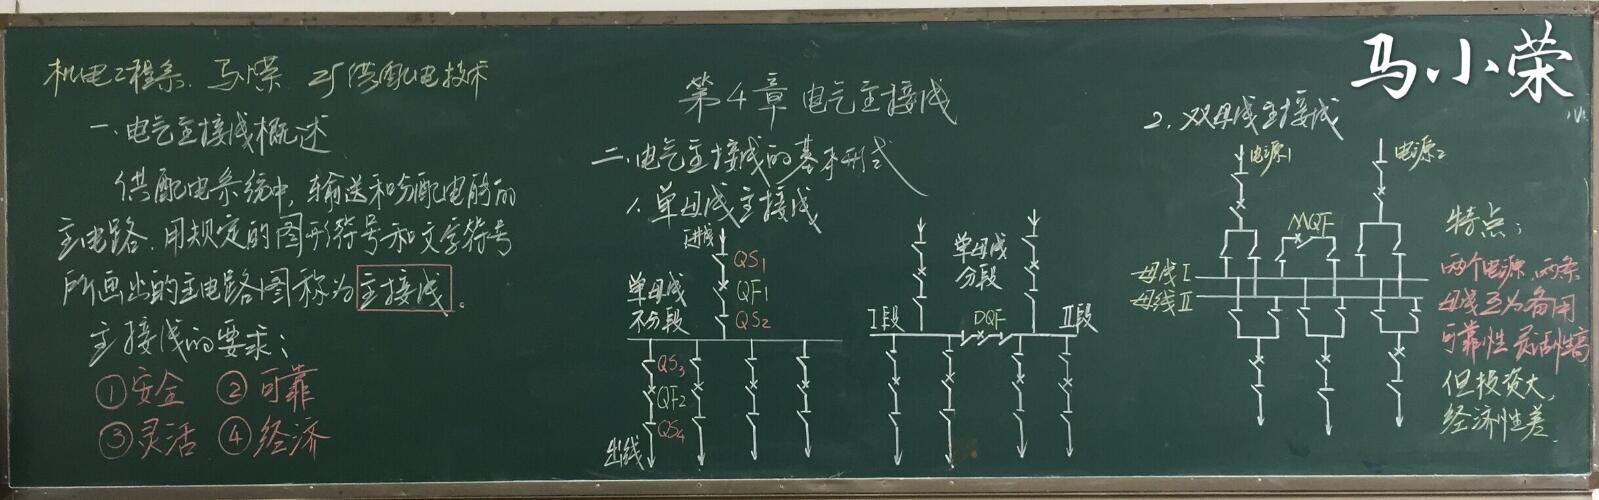 机电工程系 马小荣 工厂供配电技术
一、电气主接线概述
供配电系统中，输送和分配电能的
主电路，用规定的图形符号和文字符号
所画出的主电路图称为主接线。
主接线的要求：
①安全 ②可靠
③灵活 ④经济
第4章 电气主接线
二、电气主接线的基本形式
1、单母线主接线
进线
QS1
QF1
QS2
单母线
不分段
QS3
QF2
QS4
出线
单母线
分段
I段
DQF
II段
2、双母线主接线
电源1
电源2
MQF
母线I
母线II
特点：
两个电源，两条
母线互为备用
可靠性 灵活性高
但投资大，
经济性差
马小荣